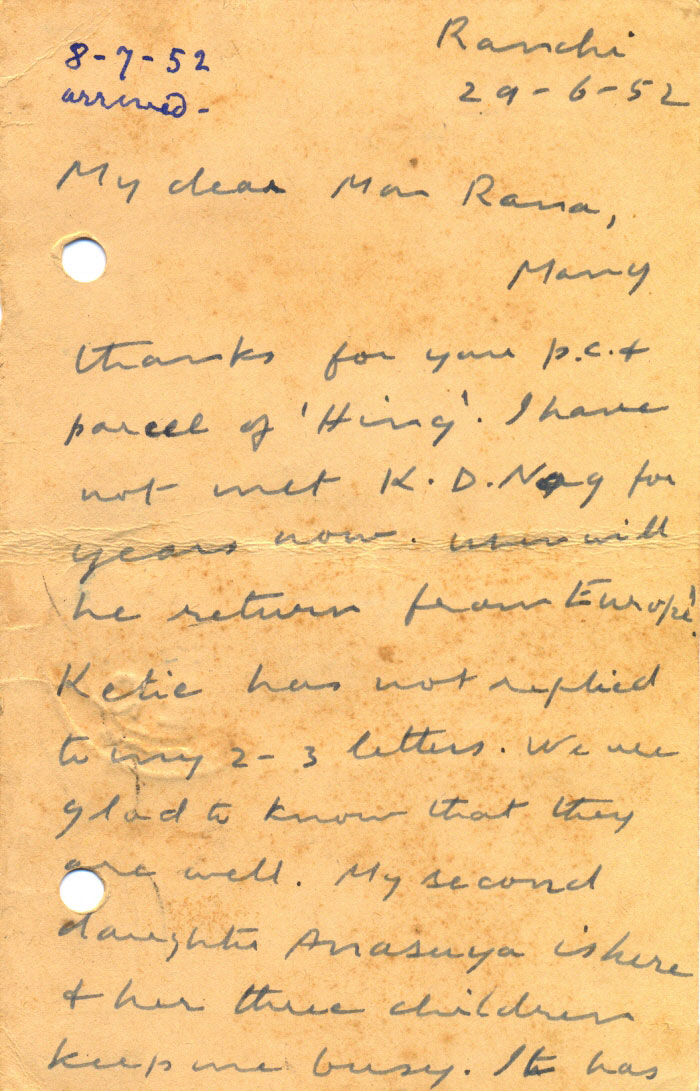 Ranchi
29-6-52
8-7-52
arrived-
My dear Man Rana,
Many
thanks for your p.c. +
parcel of 'Hing'. I have
not met K. D. Nag for
years now. When will
he return from Europe?
Ketie has not replied
to my 2-3 letters. We are
glad to know that they
are well. My second
daughter Anasuya is here
+ her three children
keep me busy. It has